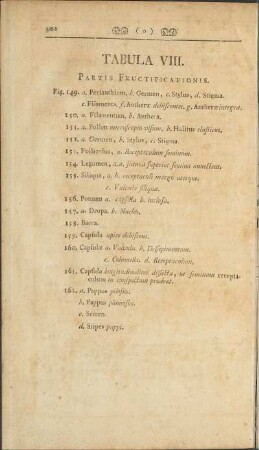 ( o )
TABULA VIII.
PARTIS FRUCTIFICATIONIS.
Fig. 149. a. Perianthium, b. Germen, c. Stylus, d. Stigma.
e. Filamenta, f. Antheræ dehiscentes, g. Antheræ integræ.
150. a. Filamentum, b. Anthera.
151. a. Pollen microscopio visum, b. Halitus elasticus.
152. a. Germen, b. Stylus, c. Stigma.
153. Folliculus, a. Receptaculum seminum.
154. Legumen, a.a. suturæ superiori semina annectens.
155. Siliqua, a. b. receptaculi margo uterque.
c. Valvula siliquæ.
156. Pomum a. capsula b. inclusa.
157. a. Drupa. b. Nucleus.
158. Bacca.
159. Capsula apice dehiscens.
160. Capsulæ a. Valvula. b. Dissepimentum.
c. Columella. d. Receptaculum.
161. Capsula longitudinaliter dissecta, ut seminum receptaculum in conspectum prodeat.
162. a. Pappus pilosus.
b. Pappus plumosus.
c. Semen.
d. Stipes pappi.